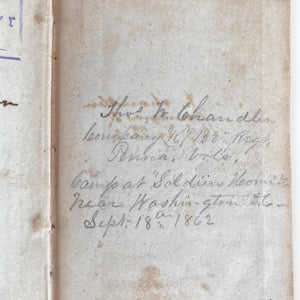 Thos K Chandler
Company K, 133rd Regt
Penna. Vols.
Camp at Soldiers Home
near Washington D.C.
Sept. 18th 1862